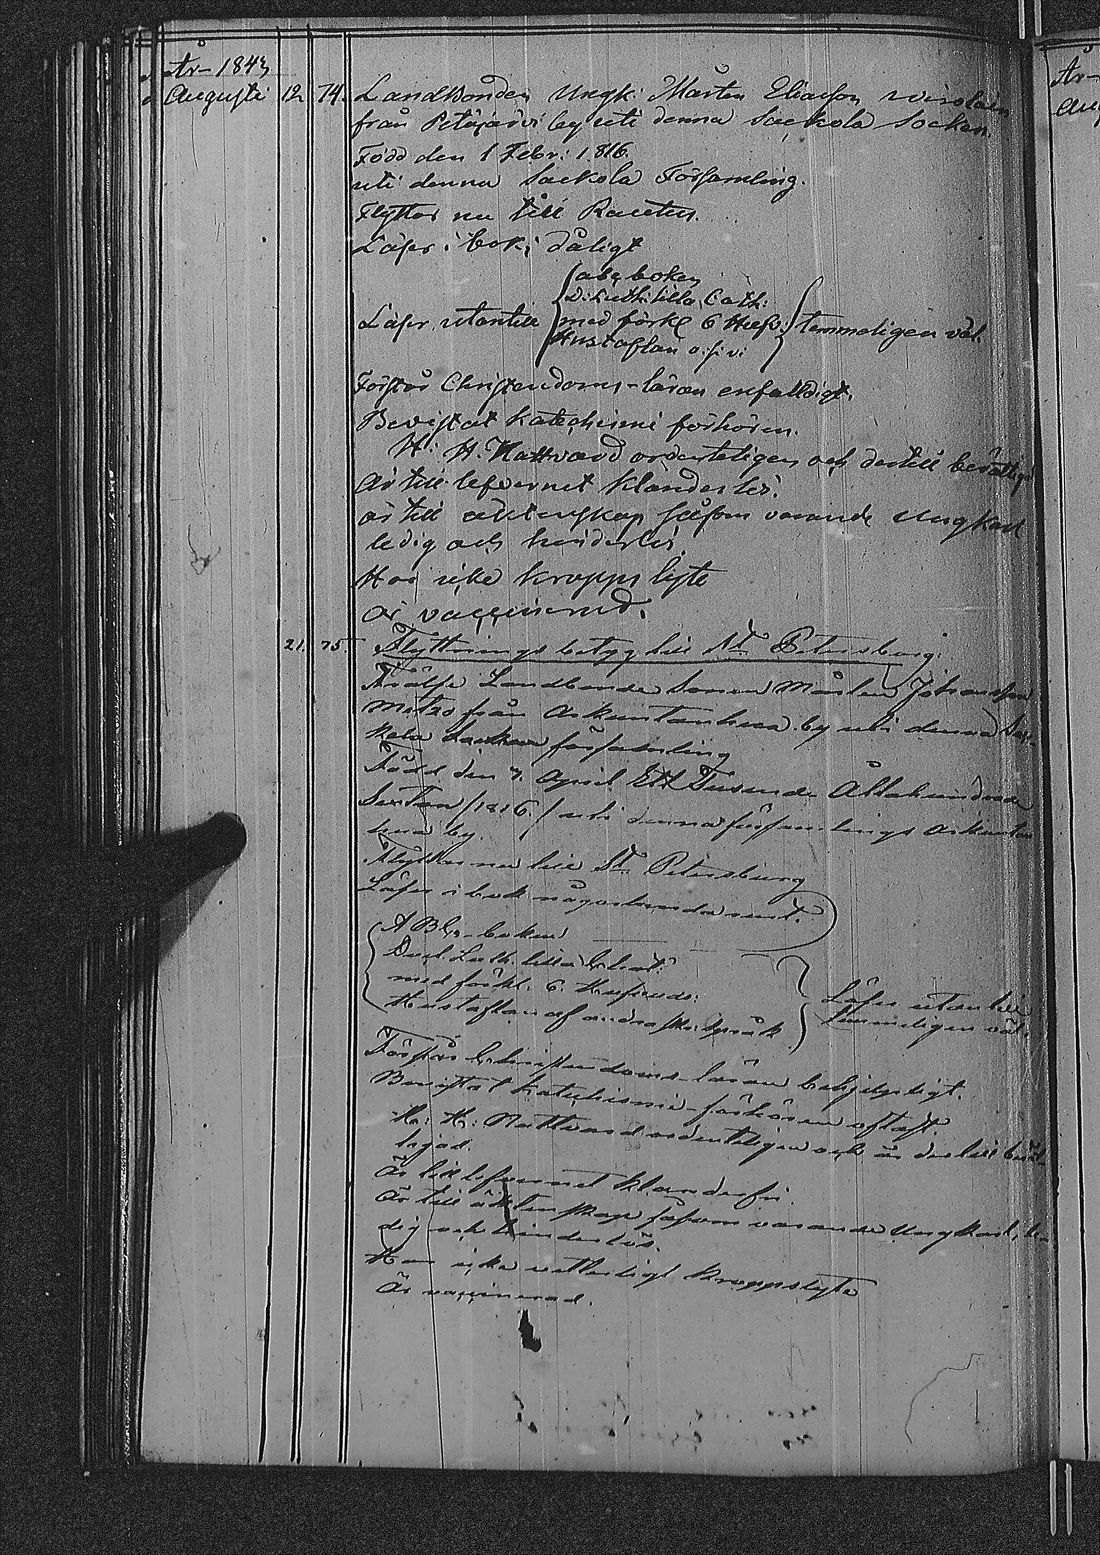 År 1843
Augusti 12. 74. Landbonden Ungk: Mårten Eliasson Wirolain
från Petäjärvi by uti denna Sackola Socken.
Född den 1 Febr: 1816.
uti denna Sackola Församling.
Flyttar nu till Rautu.
Läser i bok; dåligt
abc boken
D: Luth: lilla Cath:
Läser utantill med förkl 6 Hufv: temmeligen väl.
Hustaflan
Förstår Christendoms-läran enfaldigt.
Bevistat Katechismi förhören.
H: H. Nattvard ordenteligen och dertill berättigad
är till lefvernet klanderlös.
är till äktenskap såsom varande Ungkarl
ledig och hinderlös
Har icke kropps lyte
är vaccinerad.
21. 75 Flyttnings betyg till St. Petersburg.
Frälse Landbonde Sonen Mårten Johansson
från by uti denna
församling
Född den 7. April Ett Tusende Åttahundrade
Sexton /1816/ uti denna församlings
by.
Flyttar nu till St. Petersburg
Läser i bok någorlunda rent.
ABC-boken
Doct Luth. lilla Chat:
med förkl. 6 Hufvuds: Läser utan till
Hustaflan af andra språk temmeligen väl.
Förstår Christendoms-läran behjelpligt.
Bevistat Katechismi-förhören oftast.
H: H: Nattvard ordenteligen och är der till berät-
tigad.
Är till lefvernet klanderfri.
Är till äktenskap såsom varande Ungkarl, le-
dig och hinderlös.
Har icke vetterligt kroppslyte
Är vaccinerad.